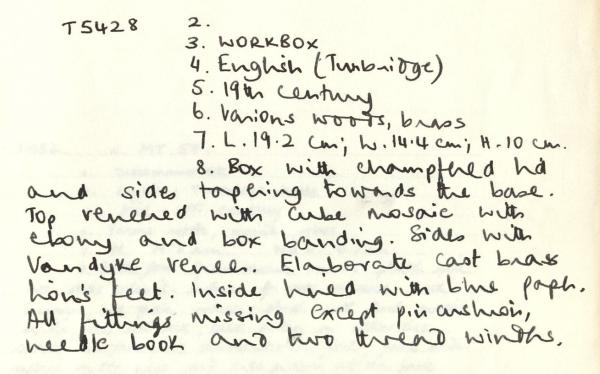 T5428 2.
3. WORKBOX
4. English (Tunbridge)
5. 19th century
6. Various woods, brass
7. L. 19.2 cm; W. 14.4 cm; H. 10 cm.
8. Box with champfered lid
and sides tapering towards the base.
Top veneered with cube mosaic with
ebony and box banding. Sides with
Vandyke veneer. Elaborate cast brass
lion's feet. Inside lined with blue paper.
All fittings missing except pin cushion,
needle book and two thread winders.